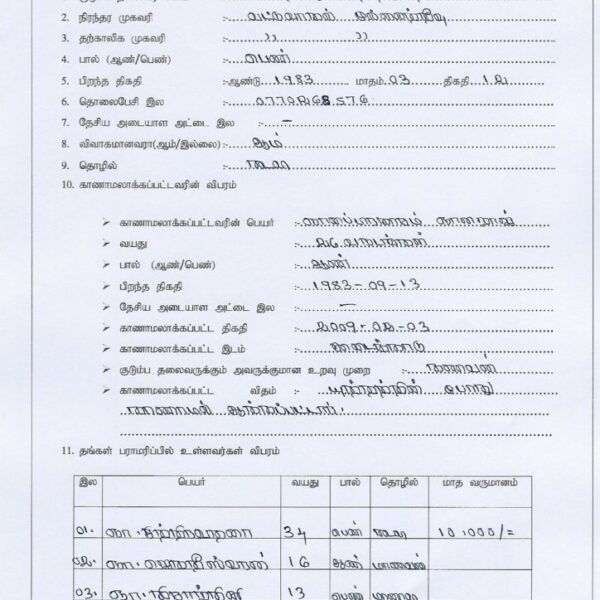 2. நிரந்தர முகவரி :-
3. தற்காலிக முகவரி :- ,, ,,
4. பால் (ஆண்/பெண்) :- பெண்
5. பிறந்த திகதி :-ஆண்டு 1983 மாதம் 03 திகதி 12
6. தொலைபேசி இல :- 0772268576
7. தேசிய அடையாள அட்டை இல :- –
8. விவாகமானவரா(ஆம்/இல்லை) :- ஆம்
9. தொழில் :- கூலி
10. காணாமலாக்கப்பட்டவரின் விபரம்
➢ காணாமலாக்கப்பட்டவரின் பெயர் :-
➢ வயது :- 26
➢ பால் (ஆண்/பெண்) :- ஆண்
➢ பிறந்த திகதி :- 1983-09-13
➢ தேசிய அடையாள அட்டை இல :- –
➢ காணாமலாக்கப்பட்ட திகதி :- 2009-02-03
➢ காணாமலாக்கப்பட்ட இடம் :-
➢ குடும்ப தலைவருக்கும் அவருக்குமான உறவு முறை :- கணவன்
➢ காணாமலாக்கப்பட்ட விதம் :- யுத்தத்தின் போது
காணாமல் ஆக்கப்பட்டார்.
11. தங்கள் பராமரிப்பில் உள்ளவர்கள் விபரம்
இல பெயர் வயது பால் தொழில் மாத வருமானம்
01. 34 பெண் கூலி 10,000/=
02. 16 ஆண் மாணவன்
03. 13 பெண் மாணவி